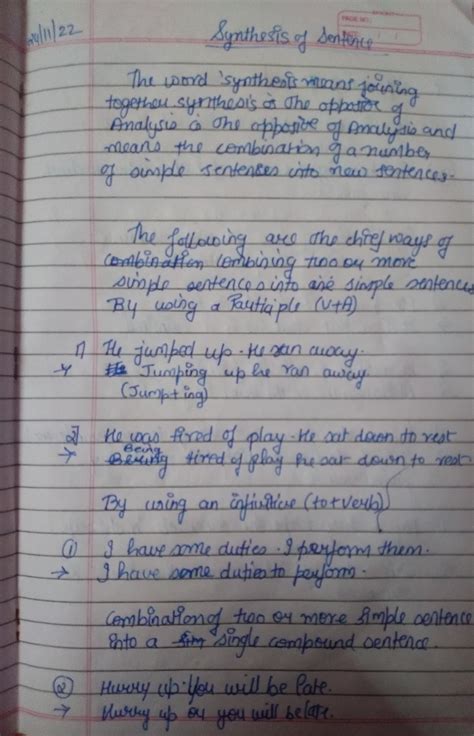 24/11/22
PAGE NO.:
Synthesis of Sentence
The word 'synthesis means joining
together synthesis is The opposite of
Analysis is The opposite of Analysis and
means the combination of a number
of simple sentences into new sentences.
The following are the chief ways of
combination combining two or more
simple sentences into one simple sentences
By using a Partiaple (V+A)
1) He jumped up. He ran away.
→ Jumping up he ran away.
(Jump + ing)
2] He was tired of play. He sat down to rest
Being
→ tired of play he sat down to rest
By using an infinitive (to+verb)
① I have some duties. I perform them.
→ I have some duties to perform.
Combination of two or more simple sentence
into a sim single compound sentence.
② Hurry up. You will be late.
→ Hurry up or you will be late.